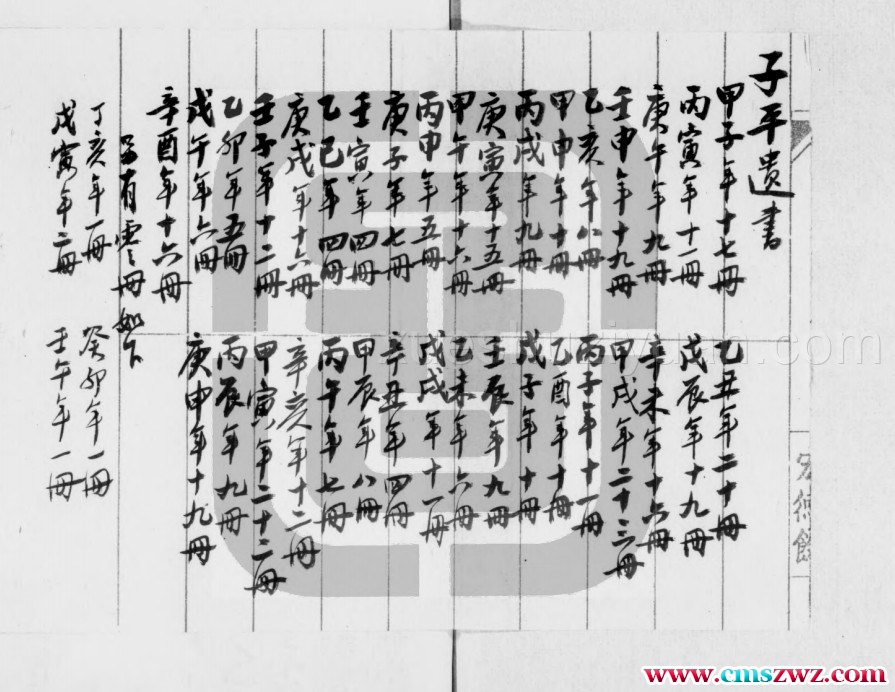 子平遗書
甲子年十七冊
乙丑年二十冊
丙寅年十一冊
戊辰年十九冊
庚午年九冊
辛未年十六冊
壬申年十九冊
甲戌年二十三冊
乙亥年八冊
丙子年十一冊
甲申年十冊
乙酉年十冊
丙戌年九冊
戊子年十冊
庚寅年十五冊
壬辰年九冊
甲午年十六冊
乙未年六冊
丙申年五冊
戊戌年十一冊
庚子年七冊
辛丑年四冊
壬寅年四冊
甲辰年八冊
乙巳年四冊
丙午年七冊
庚戌年十六冊
辛亥年十二冊
壬子年十二冊
甲寅年二十二冊
乙卯年五冊
丙辰年九冊
戊午年六冊
庚申年十九冊
辛酉年十六冊
另有零冊如下
丁亥年一冊
癸卯年一冊
戊寅年二冊
壬午年一冊
www.cmszwz.com